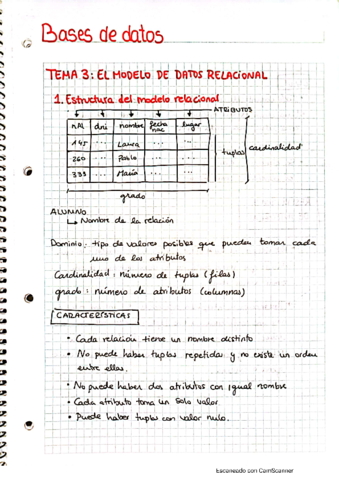 Bases de datos
TEMA 3: EL MODELO DE DATOS RELACIONAL
1. Estructura del modelo relacional
ATRIBUTOS
dni nombre fecha nac lugar
145 ... Laura ... ...
260 ... Pablo ... ...
333 ... María ... ...
tuplas cardinalidad
grado
ALUMNO
↳ Nombre de la relación
Dominio: tipo de valores posibles que pueden tomar cada
uno de los atributos
Cardinalidad: número de tuplas (filas)
grado: número de atributos (columnas)
CARACTERÍSTICAS
• Cada relación tiene un nombre distinto
• No puede haber tuplas repetidas y no existe un orden
entre ellas.
• No puede haber dos atributos con igual nombre
• Cada atributo toma un solo valor
• Puede haber tuplas con valor nulo.
Escaneado con CamScanner